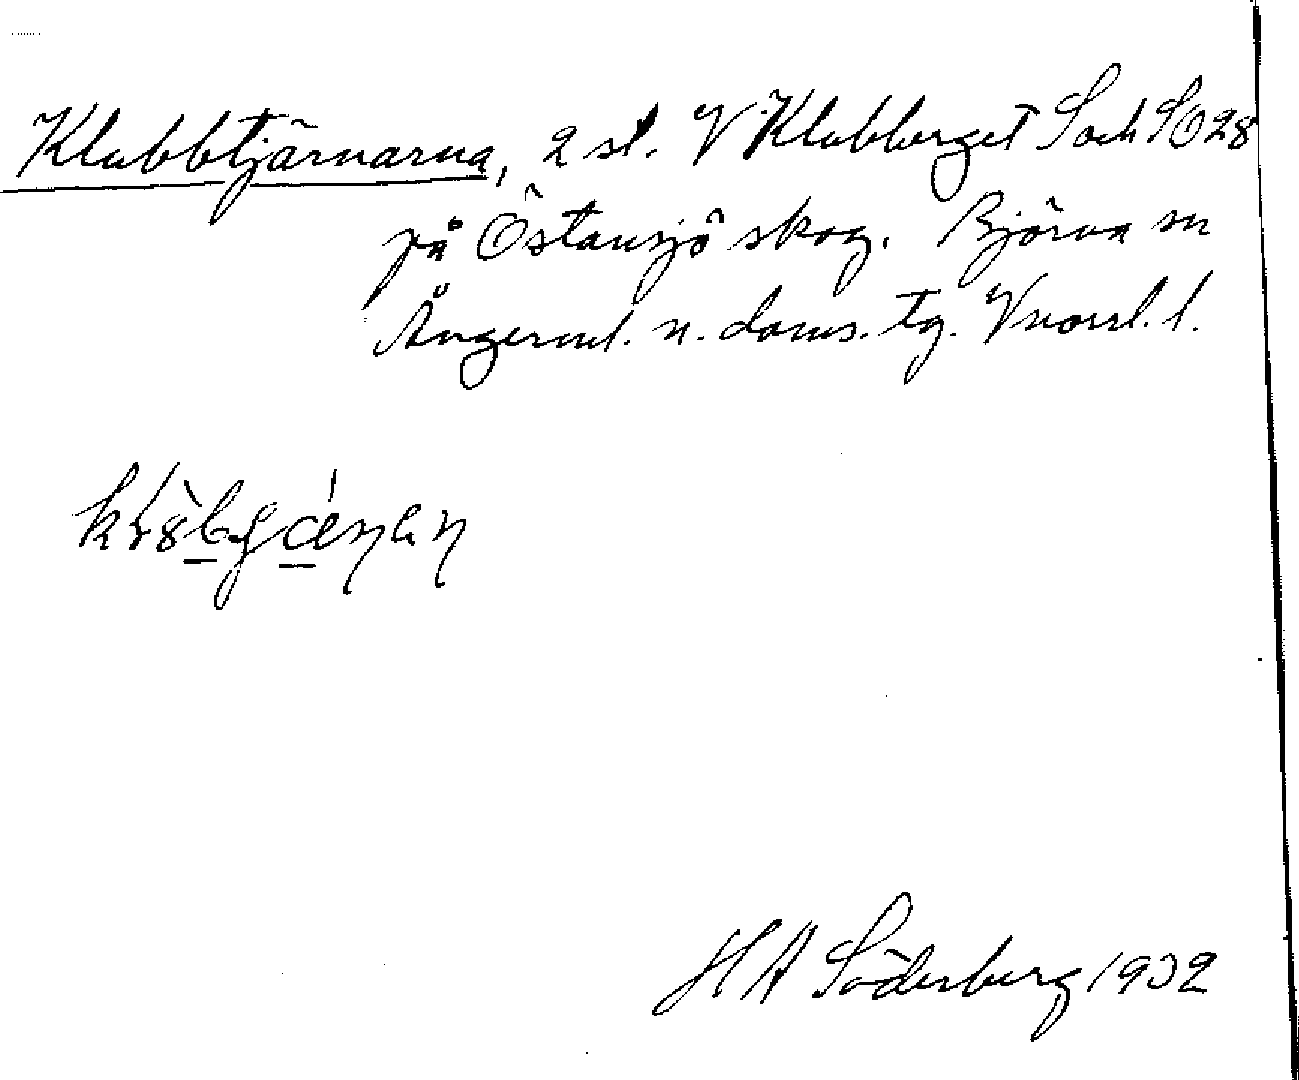 Klubbtjärnarna, 2 st. V Klubberget S och SO 28
på Östansjö skog. Björna sn
Ångerml. n. doms. tg. Vnorrl. l.
H A Söderberg 1932